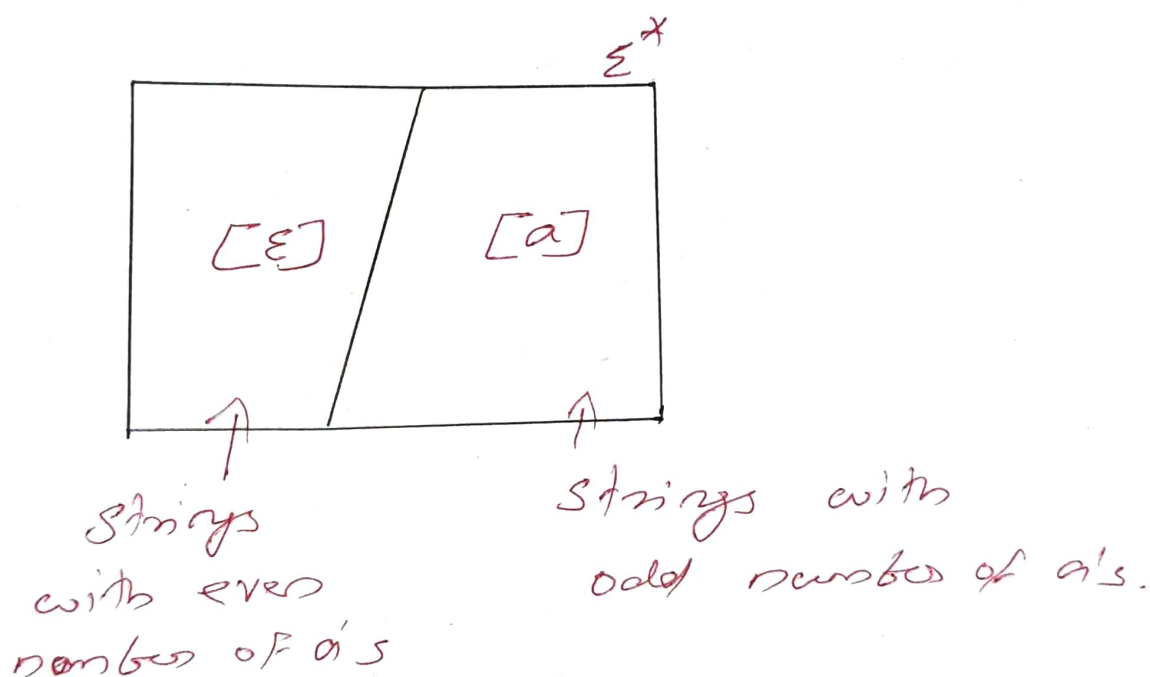 Σ*
[ε] [a]
strings
with even
number of a's
strings with
odd number of a's.